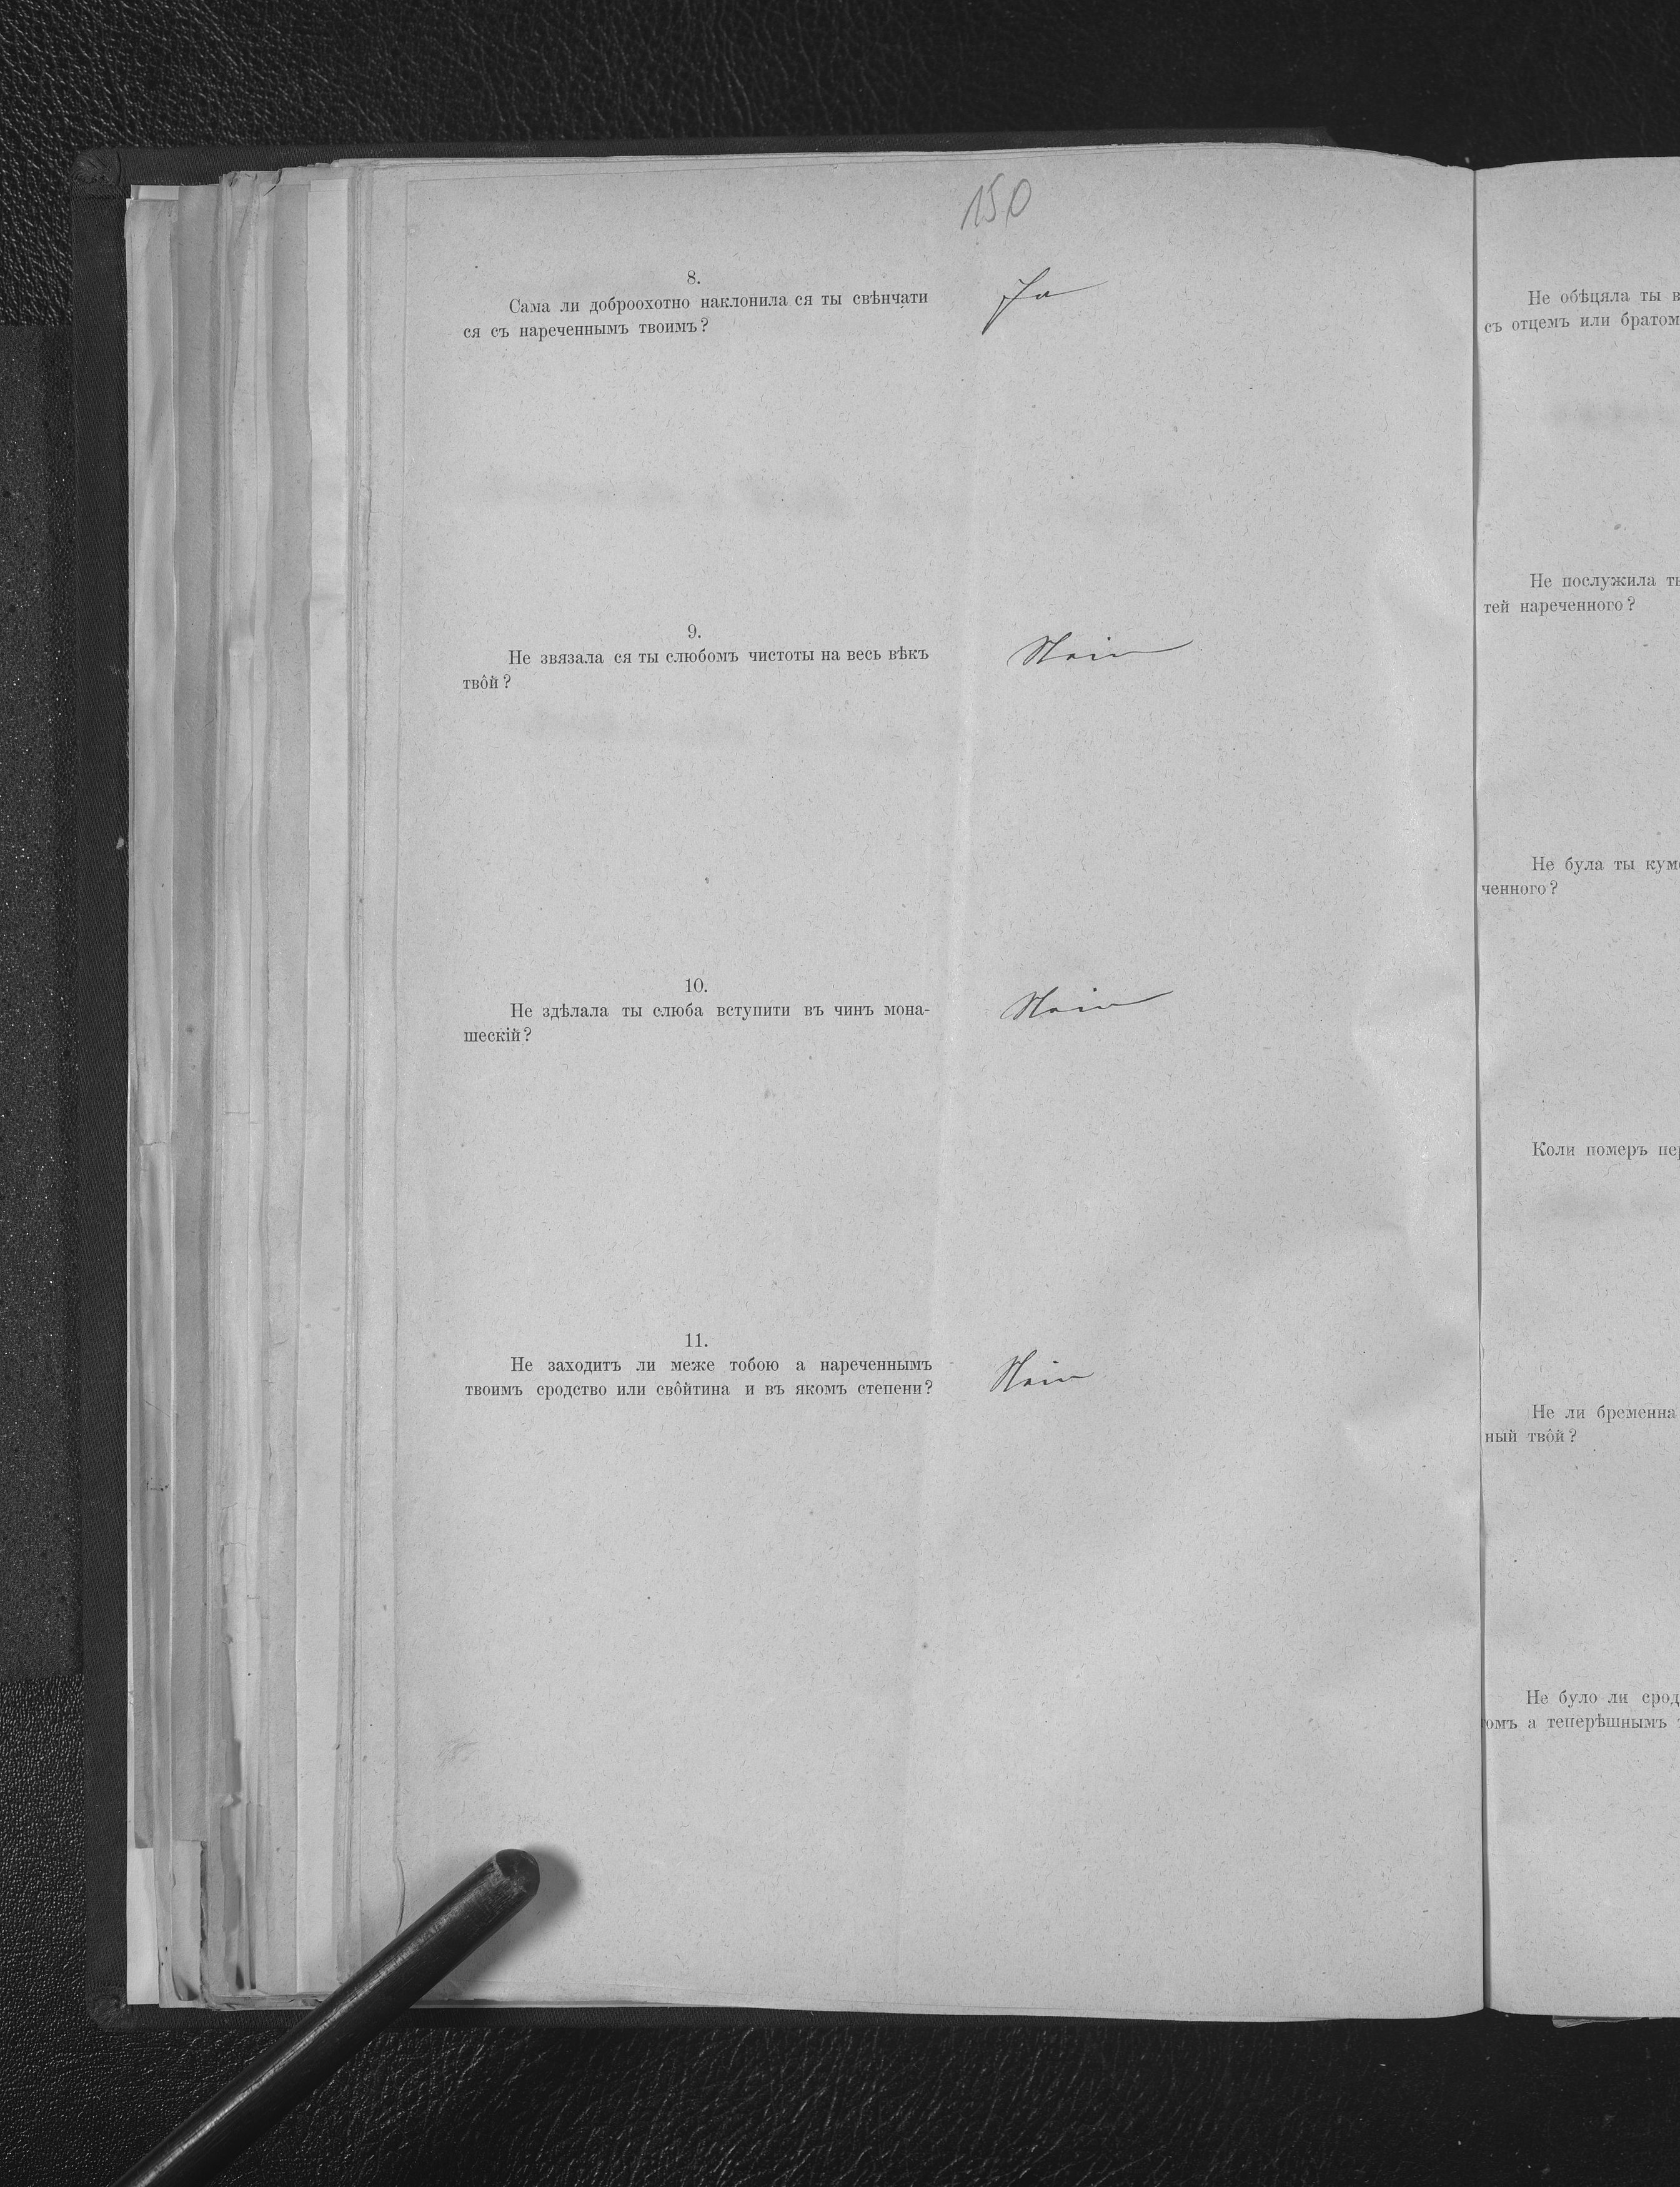 150
8.
Сама ли доброохотно наклонила ся ты свѣнчати
ся съ нареченнымъ твоимъ?
Ja
9.
Не звязала ся ты слюбомъ чистоты на весь вѣкъ
твôй?
Nein
10.
Не здѣлала ты слюба вступити въ чинъ мона-
шескій?
Nein
11.
Не заходитъ ли меже тобою а нареченнымъ
твоимъ сродство или свôйтина и въ якомъ степени?
Nein
Не обѣцяла ты в
съ отцемъ или братом
Не послужила ты
тей нареченного?
Не була ты кум
ченного?
Коли померъ пер
Не ли бременна
ный твôй?
Не було ли срод
омъ а теперѣшнымъ